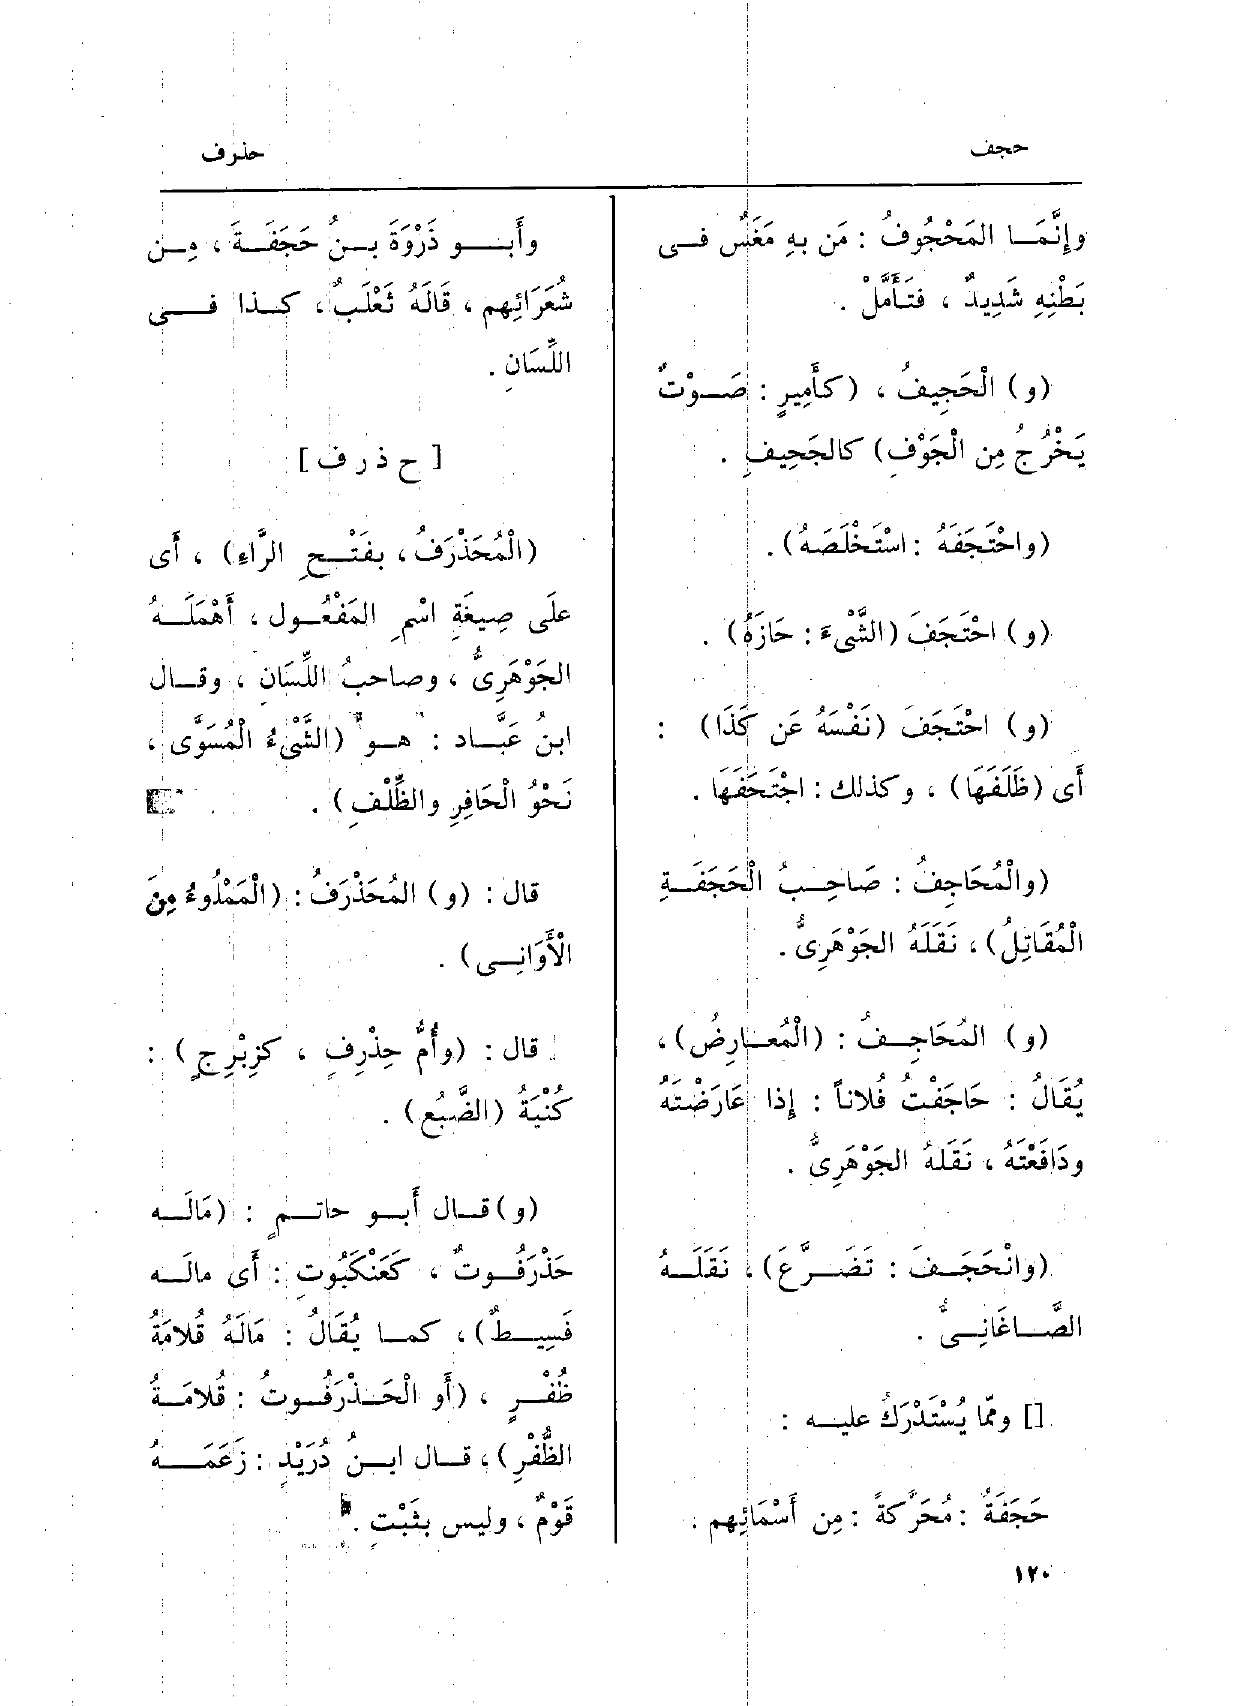 حجف
حذرف
وإِنَّمَا المَحْجُوفُ : مَن بِهِ مَغَسٌ فى
بَطْنِهِ شَدِيدٌ ، فَتَأَمَّلْ .
(و) الْحَجِيفُ ، (كأَمِيرٍ : صَوْتٌ
يَخْرُجُ مِن الْجَوْفِ) كالجَحِيفِ .
(واحْتَجَفَهُ : اسْتَخْلَصَهُ) .
(و) احْتَجَفَ (الشَّىْءَ : حَازَهُ) .
(و) احْتَجَفَ (نَفْسَهُ عَن كَذَا) :
أَى (ظَلَفَهَا) ، وكذلك : اجْتَحَفَهَا .
(والْمُحَاجِفُ : صَاحِبُ الْحَجَفَةِ
الْمُقَاتِلُ) ، نَقَلَهُ الجَوْهَرِىُّ .
(و) المُحَاجِفُ : (الْمُعَارِضُ) ،
يُقَالُ : حَاجَفْتُ فُلاناً : إِذا عَارَضْتَهُ
ودَافَعْتَهُ ، نَقَلهُ الجَوْهَرِىُّ .
(وانْحَجَفَ : تَضَرَّعَ) ، نَقَلَهُ
الصَّاغَانِىُّ .
[] وممّا يُسْتَدْرَكُ عليه :
حَجَفَةُ : مُحَرَّكَةً : مِن أَسْمَائِهم .
١٢٠
وأَبو ذَرْوَةَ بنُ حَجَفَةَ ، مِن
شُعَرَائِهم ، قَالَهُ ثَعْلَبٌ ، كذا فى
اللِّسَانِ .
[ ح ذ ر ف ]
(الْمُحَذْرَفُ ، بفَتْحِ الرَّاءِ) ، أَى
علَى صِيغَةِ اسْمِ المَفْعُول ، أَهْمَلَهُ
الجَوْهَرِىُّ ، وصاحبُ اللِّسَانِ ، وقال
ابنُ عَبَّاد : هو (الشَّىْءُ الْمُسَوَّى ،
نَحْوُ الْحَافِرِ والظِّلْفِ) .
قال : (و) المُحَذْرَفُ : (الْمَمْلُوءُ مِنَ
الْأَوَانِى) .
قال : (وأُمُّ حِذْرِفٍ ، كزِبْرِجٍ) :
كُنْيَةُ (الضَّبُعِ) .
(و) قال أَبو حاتمٍ : (مَالَه
حَذْرَفُوتٌ ، كَعَنْكَبُوتٍ : أَى مالَه
فَسِيطٌ) ، كما يُقَالُ : مَالَهُ قُلامَةُ
ظُفْرٍ ، (أَو الْحَذْرَفُوتُ : قُلامَةُ
الظُّفْرِ) ، قال ابنُ دُرَيْدٍ : زَعَمَهُ
قَوْمٌ ، وليس بثَبْتٍ .